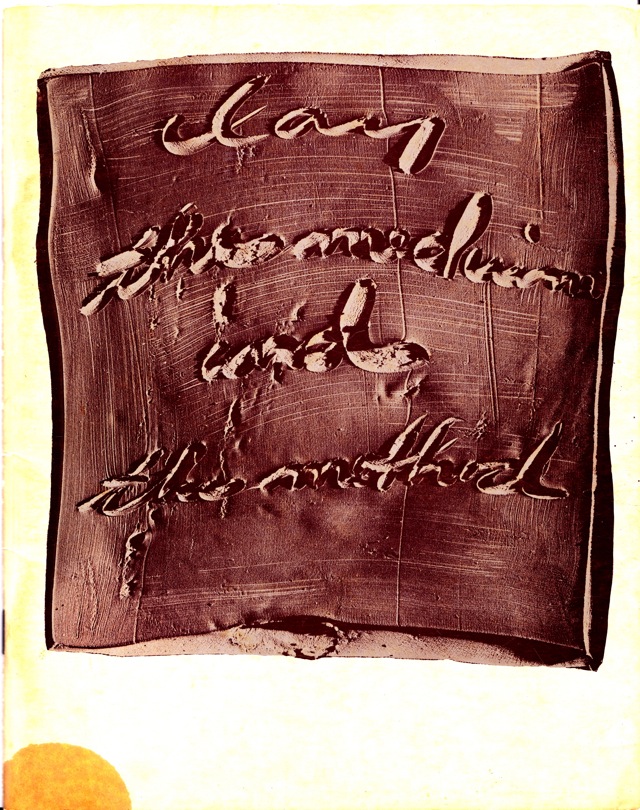 clay
the medium
and
the method